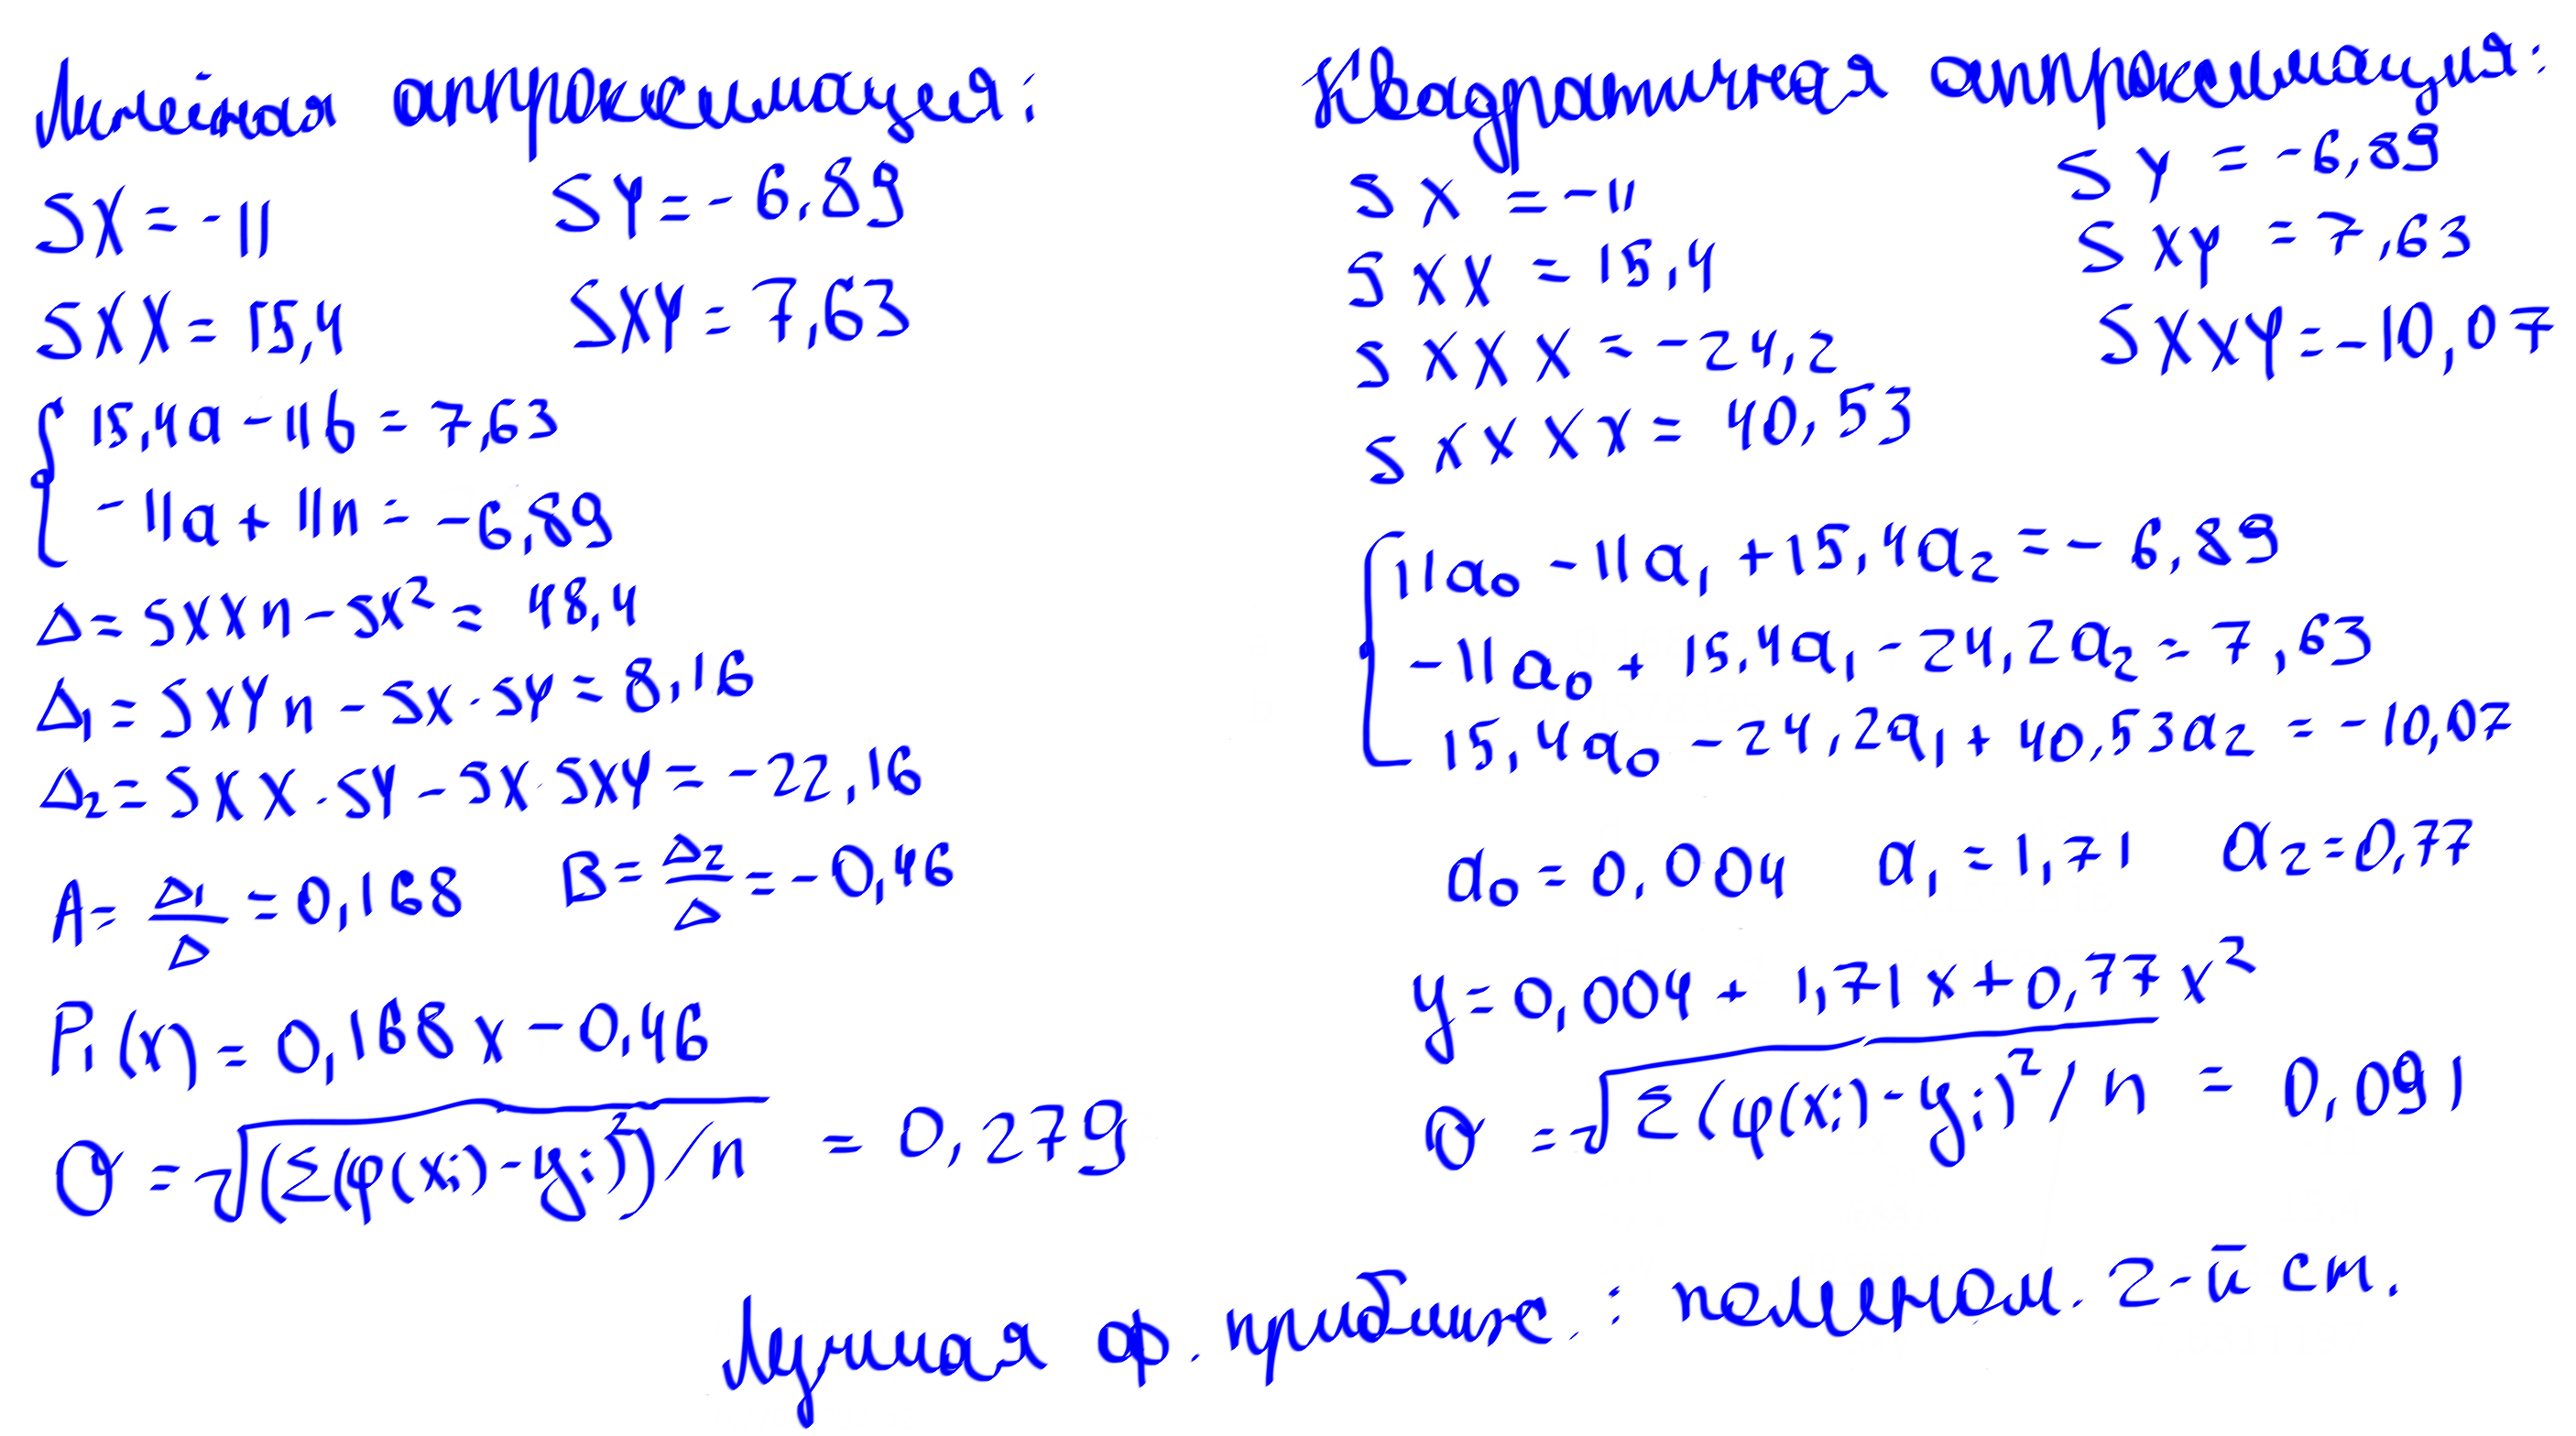 Линейная аппроксимация:
SX = -11 SY = -6,89
SXX = 15,4 SXY = 7,63
15,4a - 11b = 7,63
-11a + 11n = -6,89
Δ = SXXn - SX² = 48,4
Δ₁ = SXYn - SX·SY = 8,16
Δ₂ = SXX·SY - SX·SXY = -22,16
A = Δ₁/Δ = 0,168 B = Δ₂/Δ = -0,46
P₁(x) = 0,168x - 0,46
σ = √(Σ(φ(xᵢ) - yᵢ)²)/n = 0,279
Квадратичная аппроксимация:
SX = -11 SY = -6,89
SXX = 15,4 SXY = 7,63
SXXX = -24,2 SXXY = -10,07
SXXXX = 40,53
11a₀ - 11a₁ + 15,4a₂ = -6,89
-11a₀ + 15,4a₁ - 24,2a₂ = 7,63
15,4a₀ - 24,2a₁ + 40,53a₂ = -10,07
a₀ = 0,004 a₁ = 1,71 a₂ = 0,77
y = 0,004 + 1,71x + 0,77x²
σ = √Σ(φ(xᵢ) - yᵢ)²/n = 0,091
Лучшая ф. приближ.: полином. 2-й ст.